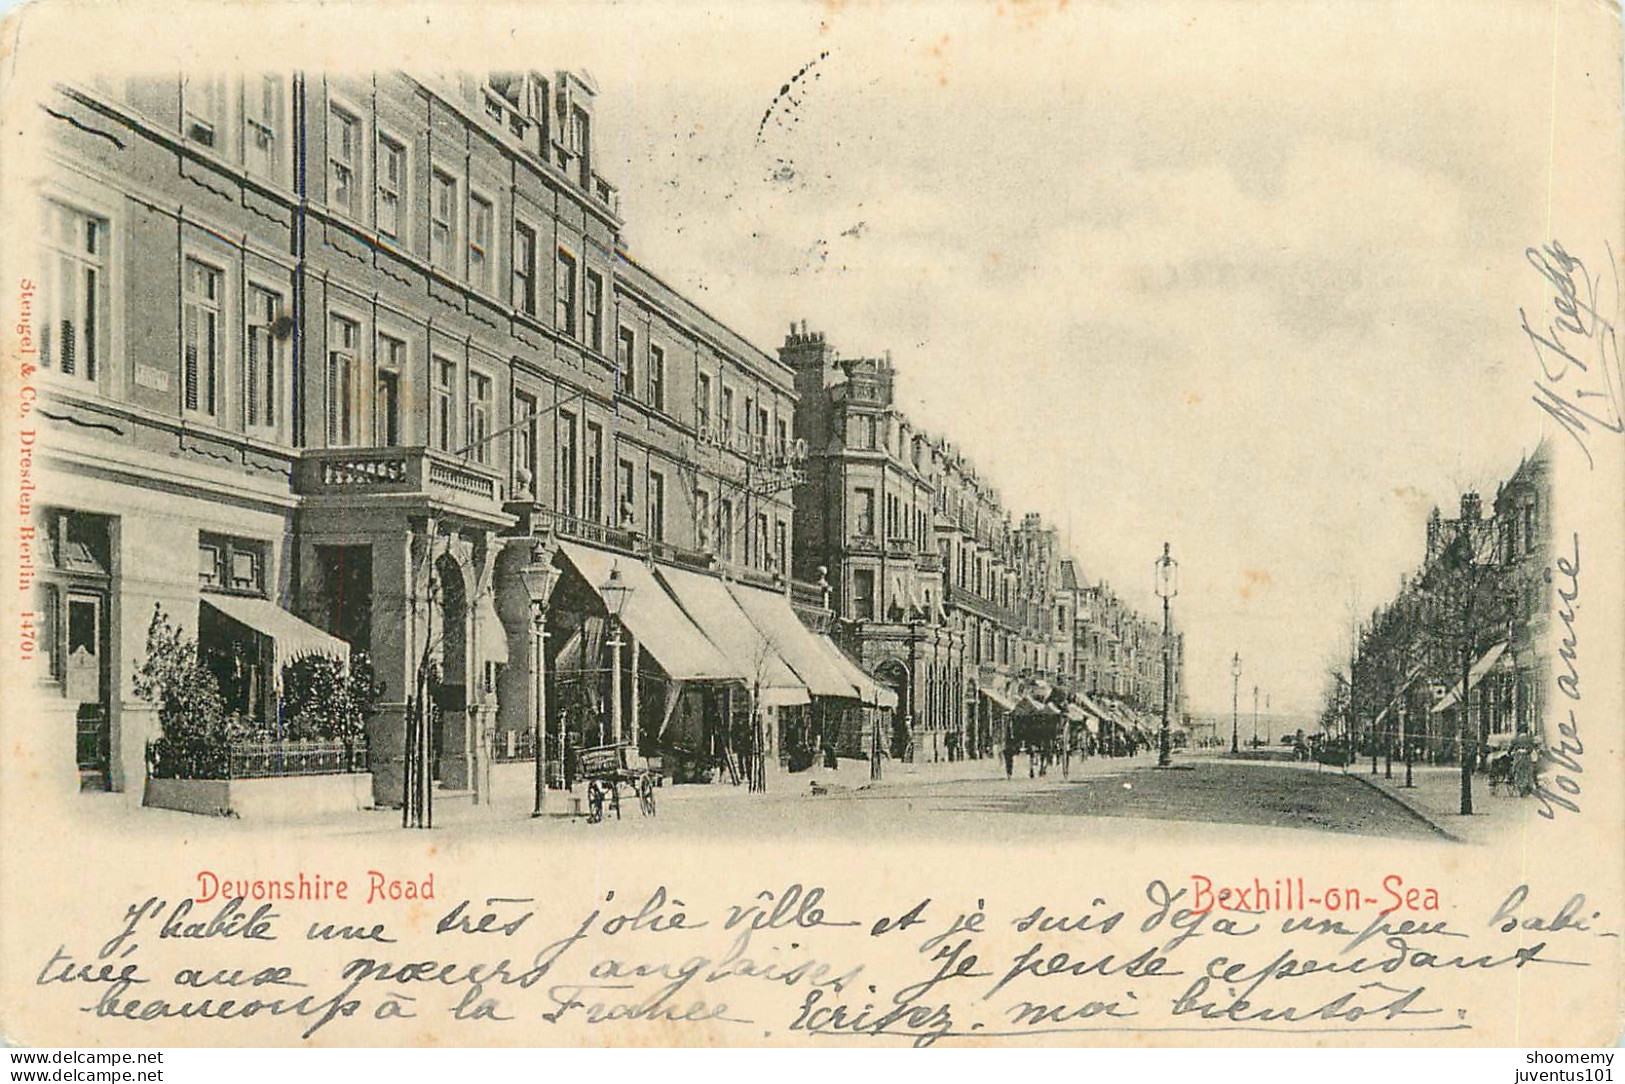 Stengel & Co. Dresden Berlin 14701
Devonshire Road
Bexhill-on-Sea
J'habite une très jolie ville et je suis déjà un peu habi-
tuée aux mœurs anglaises. Je pense cependant
beaucoup à la France. Ecrivez-moi bientôt.
Votre amie
M.
delcampe.net
shoomemy
juventus101